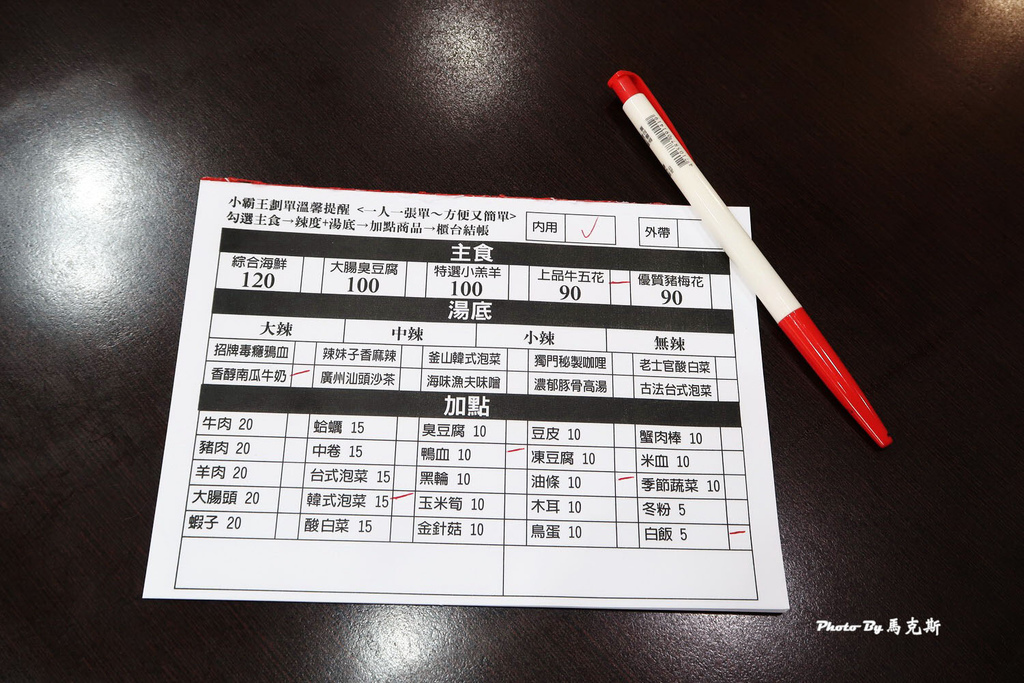 小霸王劃單溫馨提醒 <一人一張單～方便又簡單>
勾選主食→辣度+湯底→加點商品→櫃台結帳
內用 ✓ 外帶
主食
綜合海鮮 大腸臭豆腐 特選小羔羊 上品牛五花 優質豬梅花
120 100 100 90 90
湯底
大辣 中辣 小辣 無辣
招牌毒癮鴉血 辣妹子香麻辣 釜山韓式泡菜 獨門秘製咖哩 老士官酸白菜
香醇南瓜牛奶 廣州汕頭沙茶 海味漁夫味噌 濃郁豚骨高湯 古法台式泡菜
加點
牛肉 20 蛤蠣 15 臭豆腐 10 豆皮 10 蟹肉棒 10
豬肉 20 中卷 15 鴨血 10 凍豆腐 10 米血 10
羊肉 20 台式泡菜 15 黑輪 10 油條 10 季節蔬菜 10
大腸頭 20 韓式泡菜 15 玉米筍 10 木耳 10 冬粉 5
蝦子 20 酸白菜 15 金針菇 10 鳥蛋 10 白飯 5
Photo By 馬克斯